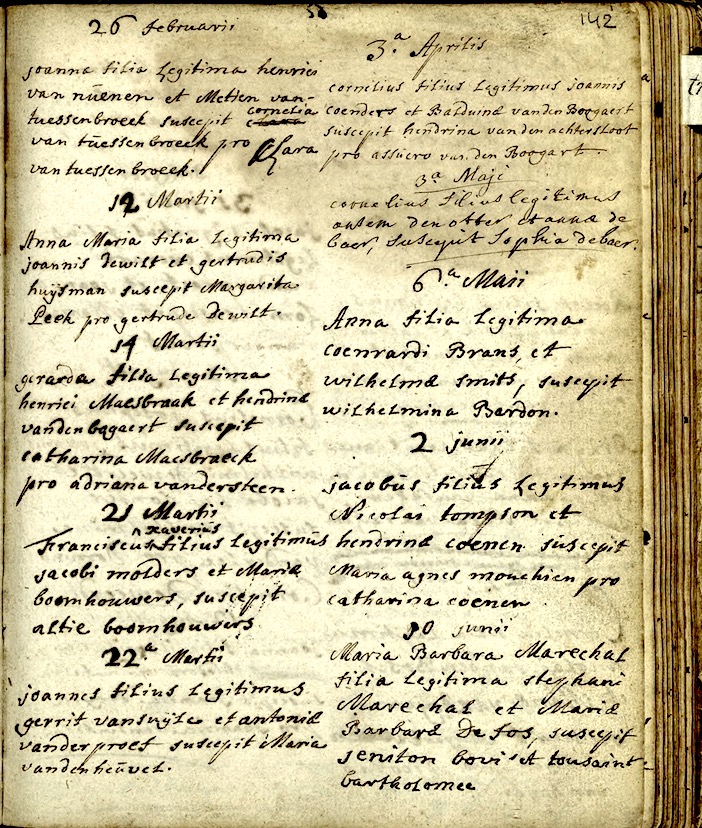 142
26 februarii
joanna filia Legitima henrici
van nüenen et Metien van-
tuessenbroeck suscepit cornelia
van tuessenbroeck pro Clara
van tuessenbroeck.
12 Martii
Anna Maria filia Legitima
joannis dewilt et gertrudis
huijsman suscepit Margarita
Peek pro gertrude dewilt.
14 Martii
gerarda filia Legitima
henrici Maesbraak et hendrinæ
vanden bogaert suscepit
catharina Maesbraeck
pro adriana vandersteen.
21 Martii
xaverius
Franciscus filius Legitimus
jacobi molders et Mariæ
boomhouwers, suscepit
altie boomhouwers
22.a Martii
joannes filius Legitimus
gerrit et antoniæ
vanderproef suscepit Maria
vandenheüvel.
3.a Aprilis
cornelius filius Legitimus joannis
coenders et Balduinæ vanden Boogaert
suscepit hendrina vanden achtersloot
pro assuero van den Boogart.
3.a Maji
cornelius filius legitimus
ansem den otter et annæ de
baer, suscepit Sophia de baer.
6.a Maii
Anna filia Legitima
coenrardi Brans, et
wilhelmæ smits, suscepit
wilhelmina Bardon.
2 junii
jacobüs filius Legitimus
Nicolai tompson et
hendrinæ coenen suscepit
Maria agnes mouchien pro
catharina coenen
10 junii
Maria Barbara Marechal
filia Legitima stephani
Marechal et Mariæ
Barbaræ De fos, suscepit
tousaint
bartholomee